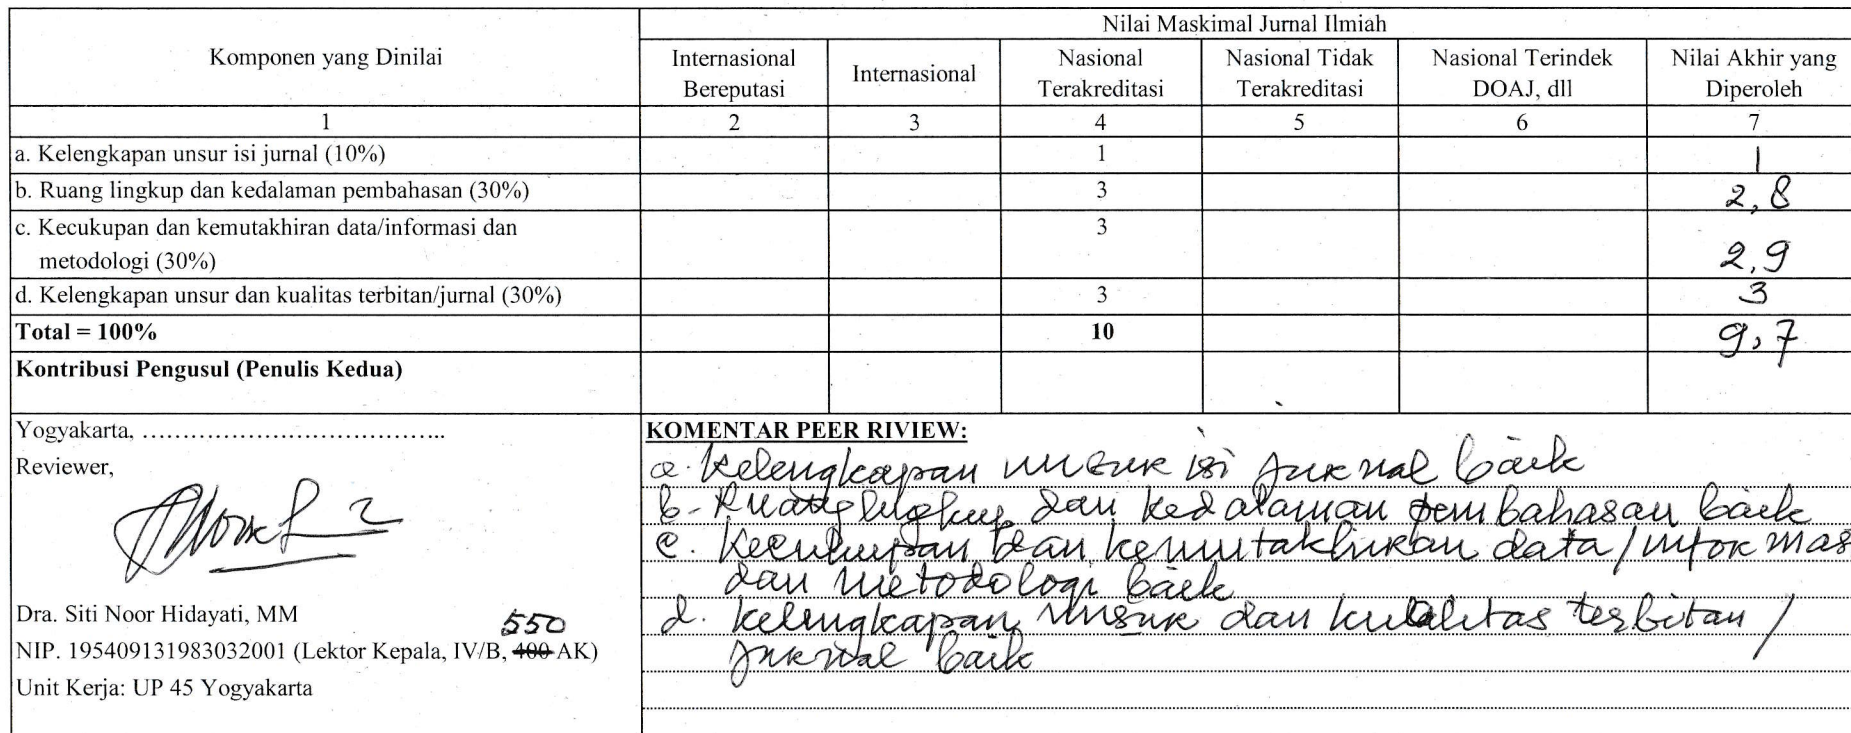 Nilai Maskimal Jurnal Ilmiah
Komponen yang Dinilai
Internasional Bereputasi
Internasional
Nasional Terakreditasi
Nasional Tidak Terakreditasi
Nasional Terindek DOAJ, dll
Nilai Akhir yang Diperoleh
1 2 3 4 5 6 7
a. Kelengkapan unsur isi jurnal (10%) 1 1
b. Ruang lingkup dan kedalaman pembahasan (30%) 3 2,8
c. Kecukupan dan kemutakhiran data/informasi dan 3
metodologi (30%) 2,9
d. Kelengkapan unsur dan kualitas terbitan/jurnal (30%) 3 3
Total = 100% 10 9,7
Kontribusi Pengusul (Penulis Kedua)
Yogyakarta, ........................................
Reviewer,
Dra. Siti Noor Hidayati, MM
550
NIP. 195409131983032001 (Lektor Kepala, IV/B, 400 AK)
Unit Kerja: UP 45 Yogyakarta
KOMENTAR PEER RIVIEW:
a. Kelengkapan unsur isi jurnal baik
b. Ruang lingkup dan kedalaman pembahasan baik
c. Kecukupan dan kemutakhiran data/informas
dan metodologi baik
d. kelengkapan unsur dan kualitas terbitan /
jurnal baik